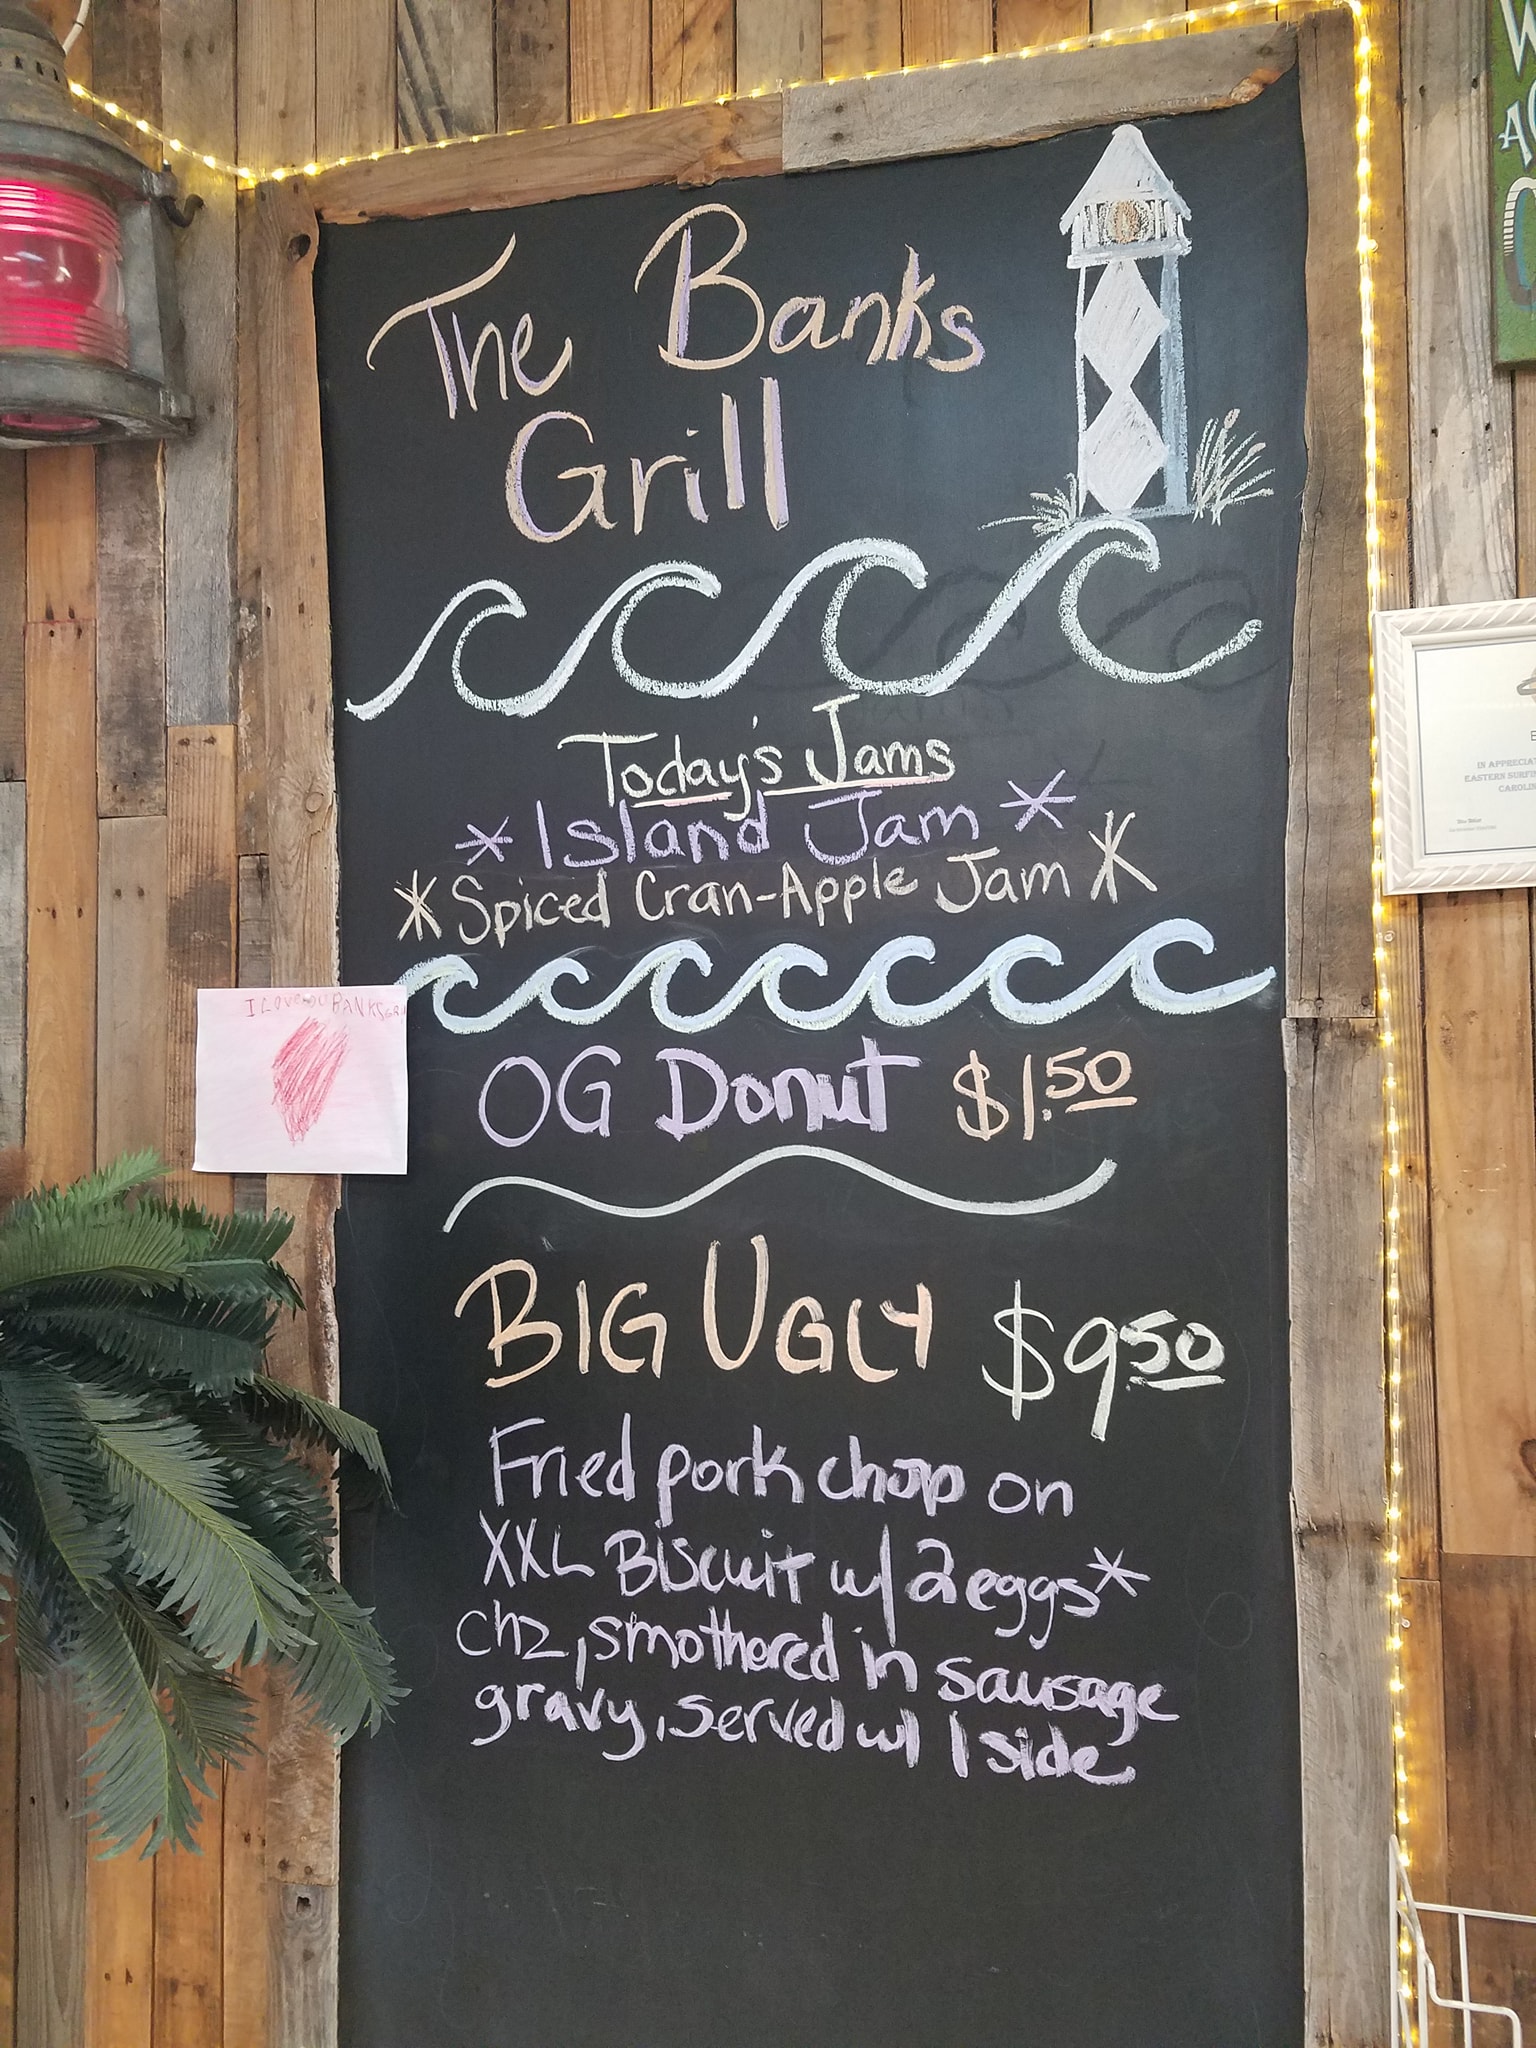 The Banks
Grill
Today's Jams
* Island Jam *
* Spiced Cran-Apple Jam *
I LOVE
BANKS
OG Donut $1.50
BIG UGLY $9.50
Fried pork chop on
XXL Biscuit w/ 2 eggs*
chz, smothered in sausage
gravy, served w/ 1 side
W
IN APPRECIAT
EASTERN SURFIN
CAROLIN